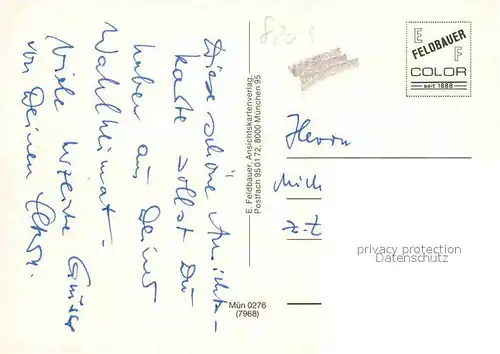 Diese schöne Ansichts-
karte sollst Du
haben aus Deiner
Wahlheimat -
Viele herzliche Grüsse
von Deinen Eltern.
E. Feldbauer, Ansichtskartenverlag,
Postfach 95 01 72, 8000 München 95
Mün 0276
(7968)
E FELDBAUER F
COLOR
seit 1888
Herrn
Mich
z. Z.
privacy protection
Datenschutz